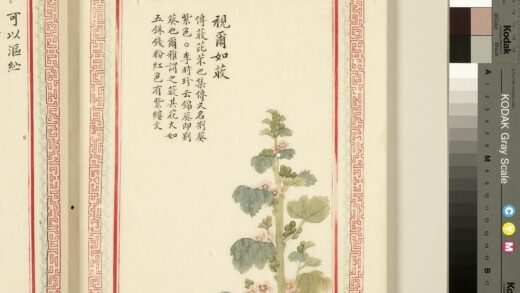 視爾如荍
傳荍芘芣也集傳又名荆葵
紫色。李時珍云錦葵即荆
葵也爾雅謂之荍其花大如
五銖錢粉紅色有紫縷文
可以漚紵
Kodak
KODAK Gray Scale
C
Y
M
A
1
2
3
4
5
6
M
8
9
10
11
12
13
14
15
B
17